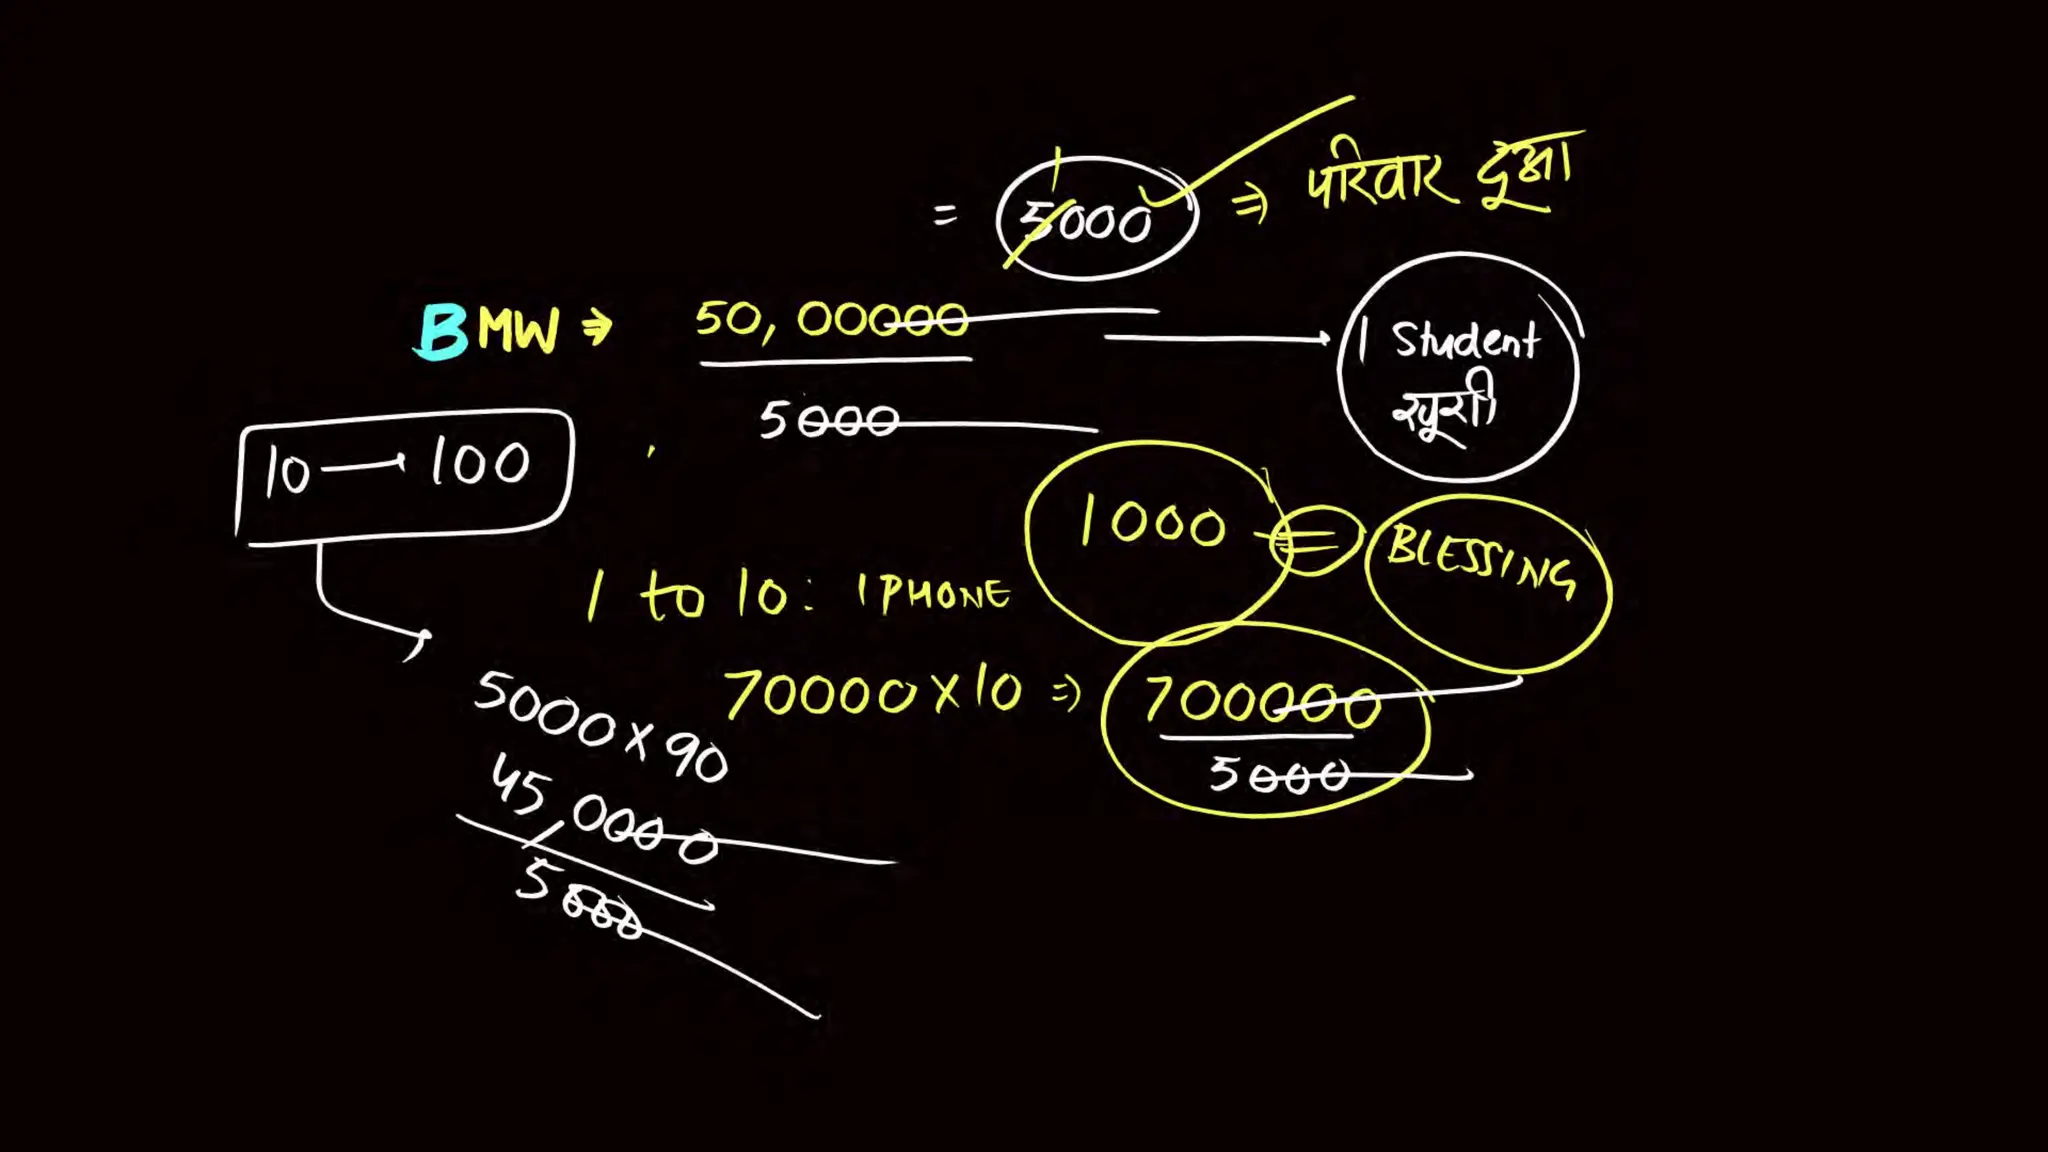 1
= 5000 ⇒ परिवार दूआ
BMW ⇒ 50,00000
5000
1 Student
खुशी
10 → 100
1000 = BLESSING
1 to 10: IPHONE
70000 × 10 ⇒ 700000
5000
5000 × 90
45,0000
5000